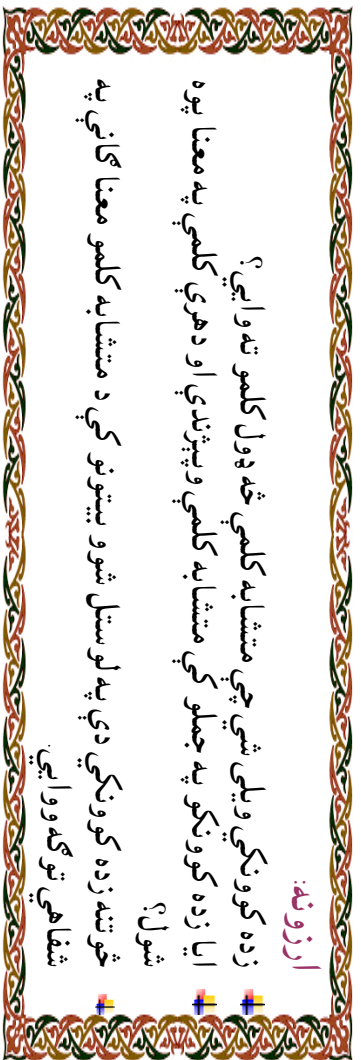 ارزونه:
زده کوونکي ویلی شي چې متشابه کلمې څه ډول کلمو ته وایي؟
ایا زده کوونکو په جملو کې متشابه کلمې وپېژندې او دهرې کلمې په معنا پوه
شول؟
څو تنه زده کوونکي دې په لوستل شوو بیتونو کې د متشابه کلمو معنا ګانې په
شفاهي توګه ووایي.